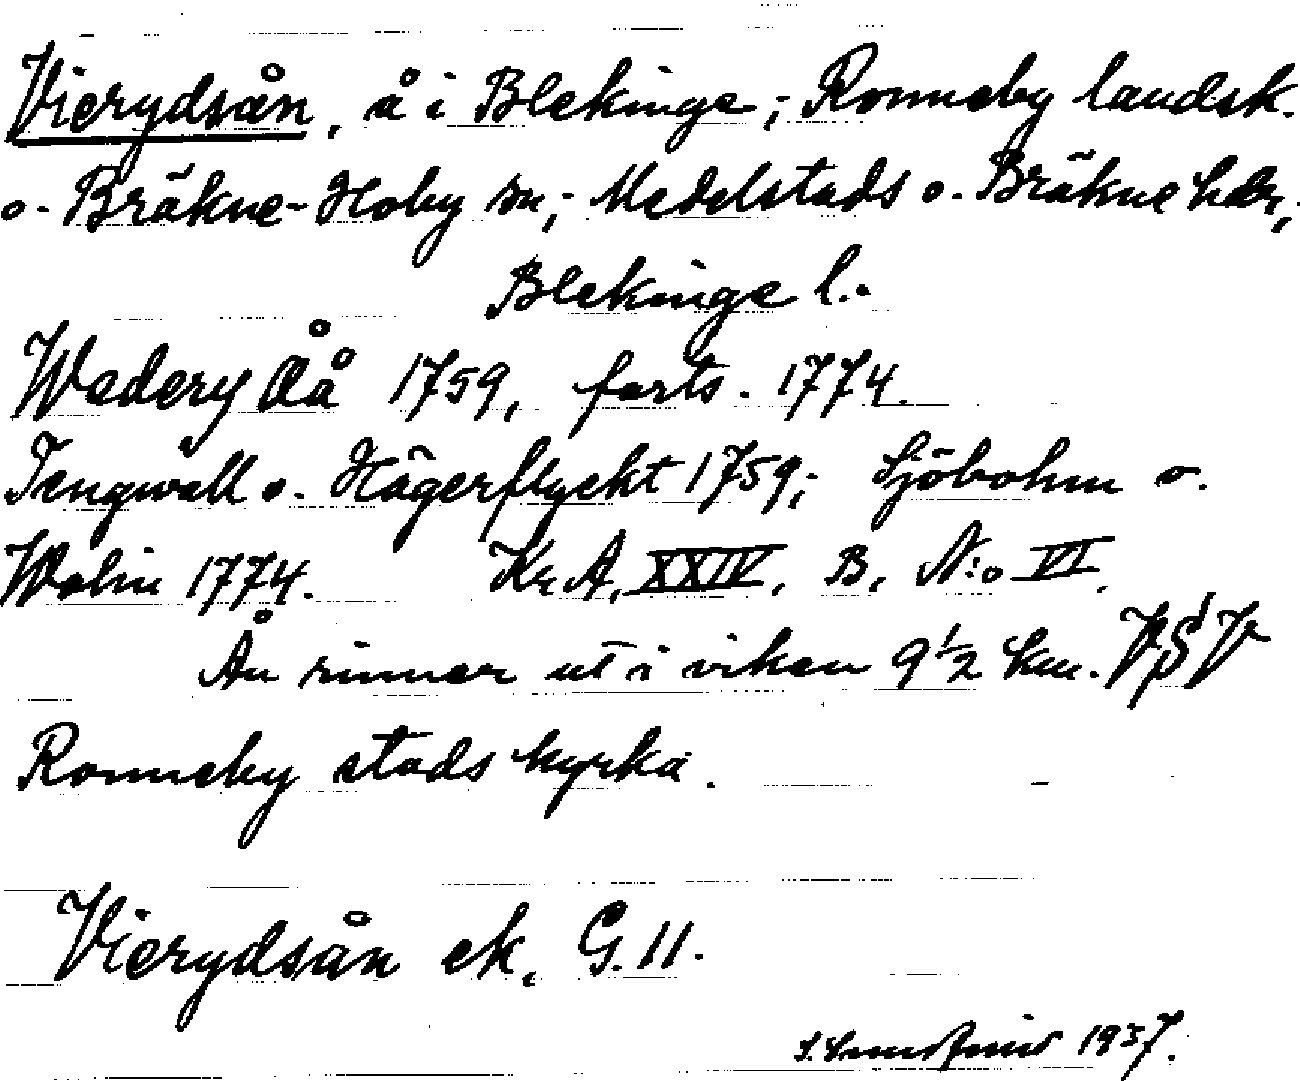 Vierydsån, å i Blekinge; Ronneby landsk.
o. Bräkne-Hoby sn; Medelstads o. Bräkne hdr,
Blekinge l.
Wedery Åå 1759, forts. 1774.
Tengwall o. Hägerflyckt 1759; Sjöbohm o.
Wolin 1774. Kr.A. XXIV. B. N:o VI.
Ån rinner ut i viken 9½ km. VSV
Ronneby stads kyrka.
Vierydsån ek. G. 11.
1937.